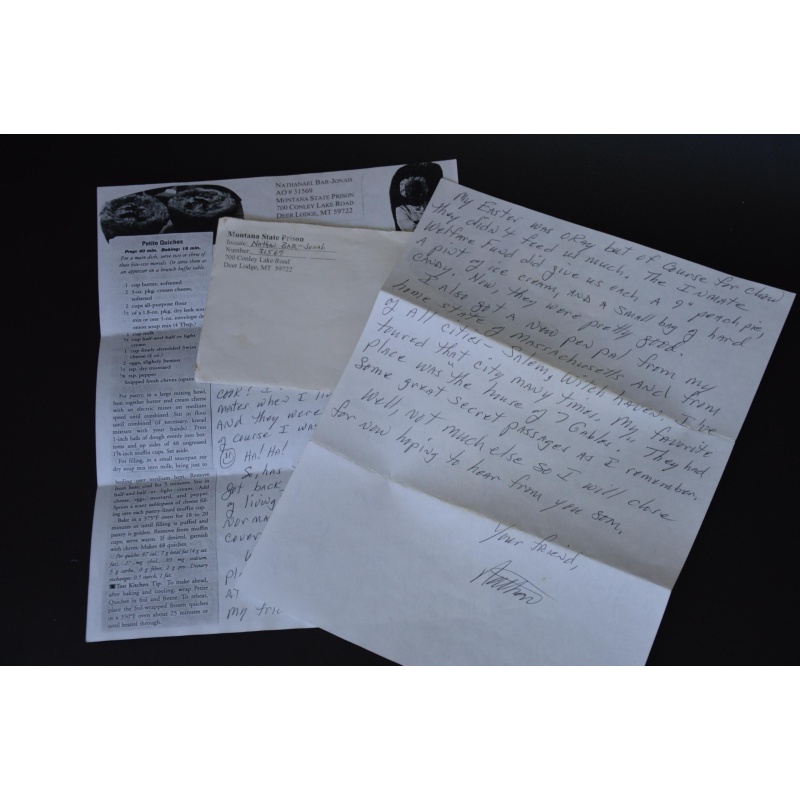 NATHANAEL BAR-JONAH
AO # 31569
MONTANA STATE PRISON
700 CONLEY LAKE ROAD
DEER LODGE, MT 59722
Petite Quiches
Prep: 40 min. Baking: 18 min.
For a main dish, serve two or three of
these bite-size morsels. Or serve them as
an appetizer on a brunch buffet table.
1 cup butter, softened
2 3-oz. pkg. cream cheese,
softened
2 cups all-purpose flour
½ of a 1.8-oz. pkg. dry leek soup
mix or one 1-oz. envelope
onion soup mix (4 Tbsp.)
1 cup milk
½ cup half-and-half or light
cream
1 cup finely shredded Swiss
cheese (4 oz.)
2 eggs, slightly beaten
½ tsp. dry mustard
tsp. pepper
Snipped fresh chives
For pastry, in a large mixing bowl,
beat together butter and cream cheese
with an electric mixer on medium
speed until combined. Stir in flour
until combined (if necessary, knead
mixture with your hands). Press
1-inch balls of dough evenly into bot-
toms and up sides of 48 ungreased
1¾-inch muffin cups. Set aside.
For filling, in a small saucepan stir
dry soup mix into milk; bring just to
boiling over medium heat. Remove
from heat; cool for 5 minutes. Stir in
half-and-half or light cream. Add
cheese, eggs, mustard, and pepper
Spoon a scant tablespoon of cheese fill-
ing into each pastry-lined muffin cup.
Bake in a 375°F oven for 18 to 20
minutes or until filling is puffed and
pastry is golden. Remove from muffin
cups; serve warm. If desired, garnish
with chives. Makes 48 quiches.
Per quiche: 87 cal., 7 g total fat (4 g sat.
fat), 27 mg chol., 85 mg sodium,
5 g carbo., 0 g fiber, 2 g pro. Dietary
exchanges: 0.5 starch, 1 fat.
Test Kitchen Tip: To make ahead,
after baking and cooling, wrap Petite
Quiches in foil and freeze. To reheat,
place the foil-wrapped frozen quiches
in a 350°F oven about 25 minutes or
until heated through.
Montana State Prison
Inmate: Nathan Bar-Jonah
Number: 31569
700 Conley Lake Road
Deer Lodge, MT 59722
mates when I li
And they were
of course I was
Ha! Ha!
So, has
got back
of living
Norma
cover
pl
AT
my tric
My Easter was okay but of course for chow
they didn't feed us much. The Inmate
Welfare Fund did give us each, a 9" peach pie,
a pint of ice cream, and a small bag of hard
candy. Now, they were pretty good.
I also got a new pen pal from my
home state of Massachusetts and from
of all cities - Salem, Witch haven. I've
toured that city many times. My favorite
place was "the house of 7 Gables". They had
some great secret passages as I remember.
Well, not much else so I will close
for now hoping to hear from you som.
Your friend,
Nathan